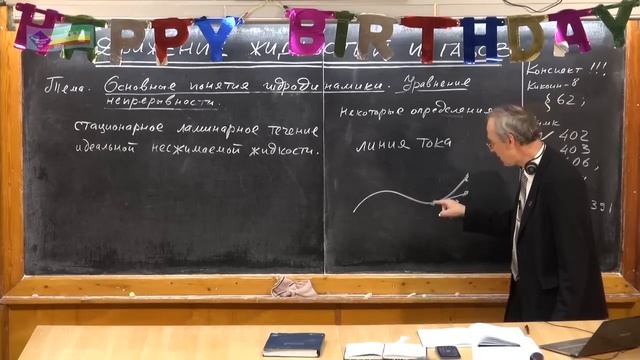 HAPPY BIRTHDAY
Движение жидкостей и газов
Тема. Основные понятия гидродинамики. Уравнение
непрерывности.
стационарное ламинарное течение
идеальной несжимаемой жидкости.
некоторые определения
линия тока
Конспект !!!
Кикоин-8
§ 62,
402
403
06,
391